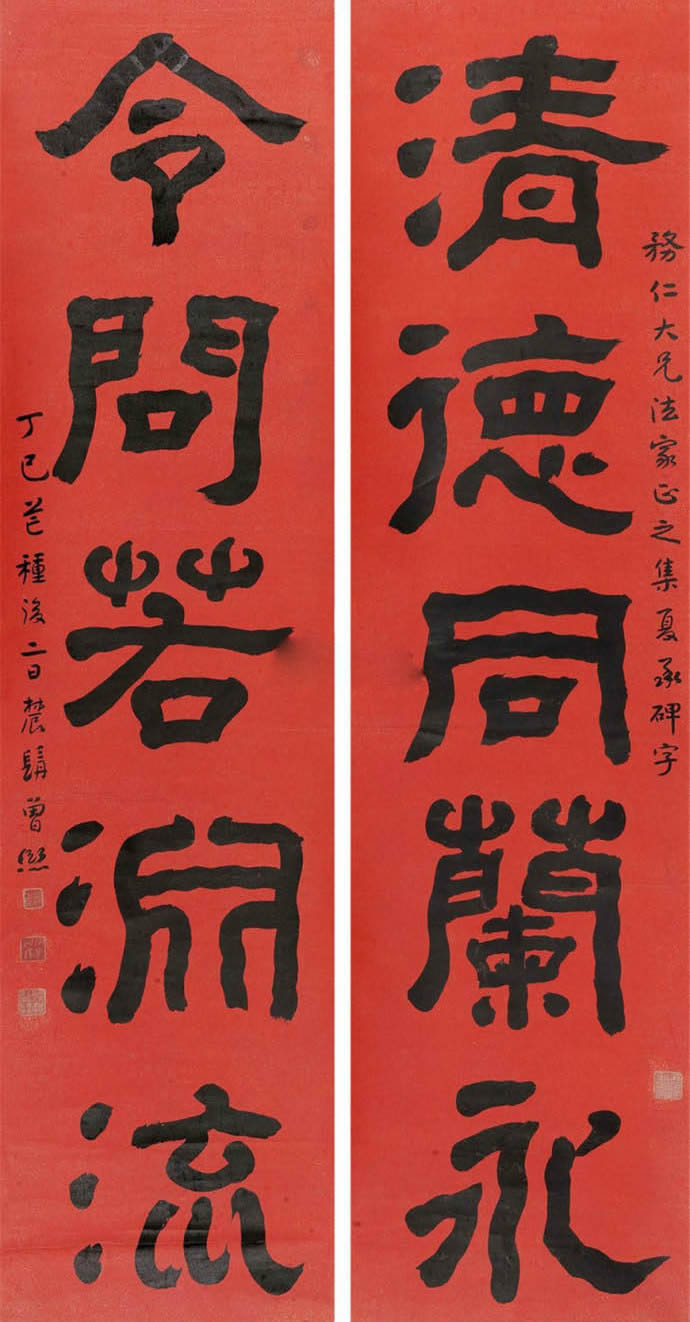 務仁大兄法家正之集夏承碑字
清德同蘭永
令問若淵流
丁巳芒種後二日農髯曾熙